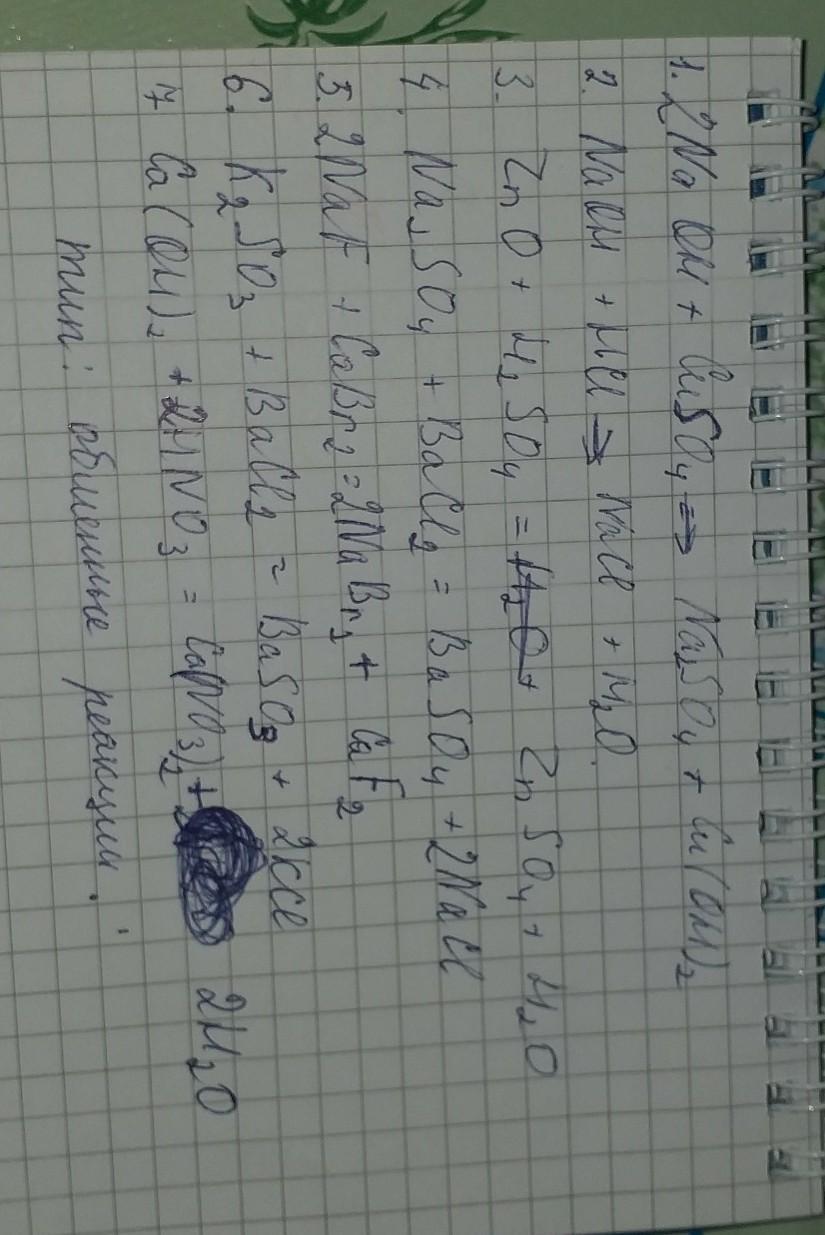 1. 2NaOH + CuSO₄ → Na₂SO₄ + Cu(OH)₂
2. NaOH + HCl → NaCl + H₂O.
3. ZnO + H₂SO₄ = ZnSO₄ + H₂O
4. Na₂SO₄ + BaCl₂ = BaSO₄ + 2NaCl
5. 2NaF + CaBr₂ = 2NaBr₂ + CaF₂
6. K₂SO₃ + BaCl₂ = BaSO₃ + 2KCl
7 Ca(OH)₂ + 2HNO₃ = Ca(NO₃)₂ + 2H₂O
тип: обменные реакции.